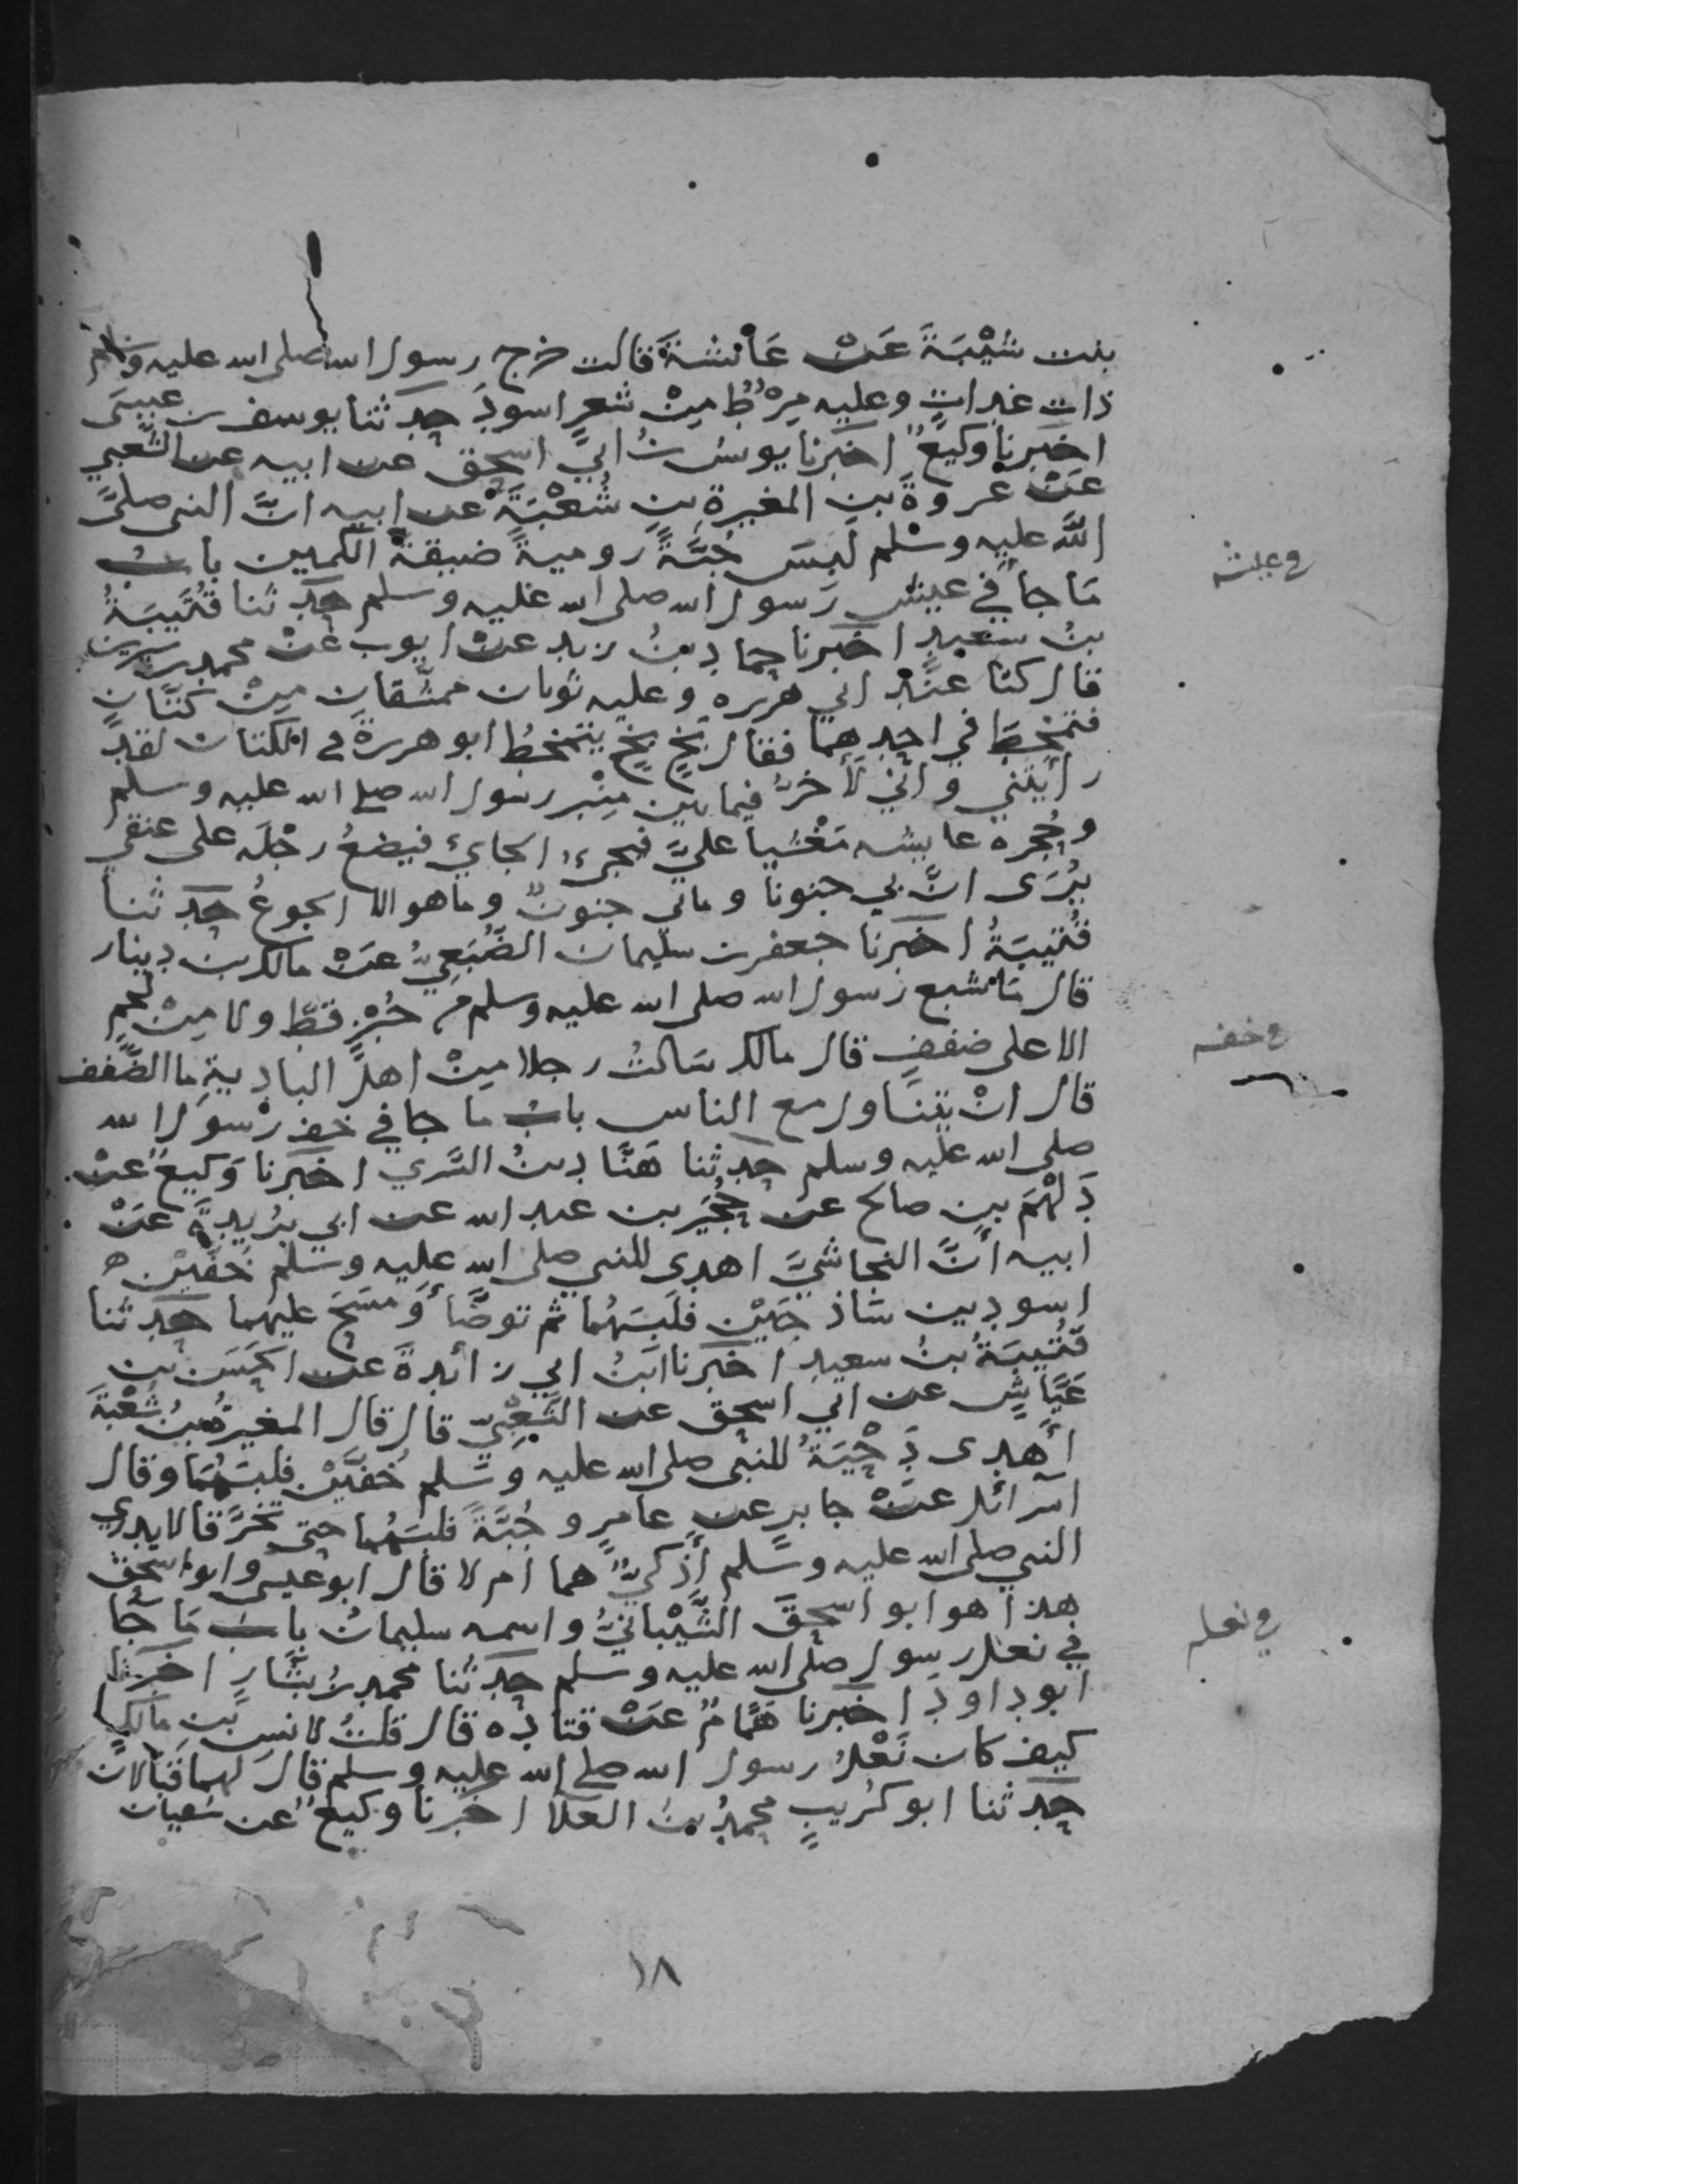 بنت شَيْبَةَ عَنْ عَائشةَ قالت خرج رسول الله صلى الله عليه وسلم
ذات غداتٍ وعليه مِرْطٌ مِنْ شعرٍ اسودَ حدثنا يوسف بن عيسَى
اخبرنا وكيعٌ اخبرنا يونسُ بنُ ابيَ اسحق عن ابيه عن الشَّعبي
عَنْ عُروةَ بنِ المغيرةِ بنِ شُعْبَةَ عن ابيه انَّ النبي صلى
اللَّه عليه وسلم لَبِسَ جُبَّةً روميةً ضيقةَ الكمين باب
مَا جا في عيش رسول الله صلى الله عليه وسلم حدثنا قُتَيبَةُ
بنُ سعيدٍ اخبرنا حماد بنُ زيد عنْ ايوب عَنْ محمد بن سيرين
قال كنَّا عنْدَ ابي هريره وعليه ثوبان ممشَّقان مِنْ كَتَّانٍ
فتمخَّطَ في احدِهمَا فقال بَخٍ بَخٍ يتمخطُ ابو هريرةَ في الكتان لقد
رأيتني وانّي لأخرُّ فيما بين مِنْبر رسول الله صلى الله عليه وسلم
وحُجره عايشه مَغْشيا عليَّ فيجيءُ الجائي فيضعُ رجْلَه على عنقي
يُرَى انَّ بي جنونا وما بي جنونٌ وما هو الا الجوعُ حدثنا
قُتيبَةُ اخبرنا جعفر بن سليمان الضُّبَعِيُّ عَنْ مالك بن دينار
قال مَا شبع رسول الله صلى الله عليه وسلم من خُبْزٍ قطّ ولا مِنْ لحمٍ
الا على ضففٍ قال مالك سَالتُ رجلا مِنْ اهل الباديةِ ما الضَّفف
قال انْ يتنَاول مع الناس بابُ ما جا في خف رسول الله
صلى الله عليه وسلم حدثنا هَنَّاد بنُ السَّري اخبرنا وَكيعٌ عنْ
دَلْهَمَ بنِ صالح عن حُجَيْر بن عبد الله عن ابي بُرَيدةَ عَنْ
ابيه أنَّ النجاشيَّ اهدى للنبي صلى الله عليه وسلم خُفَّيْنِ
اسودين سَاذجَيْن فلَبسَهُما ثم توضَّأ ومَسَحَ عليهما حدثنا
قُتيبَةُ بنُ سعيدِ اخبرنا ابنُ ابي زائدةَ عن الحَسَنِ بن
عَيَّاشٍ عن ابي اسحق عن الشَّعْبِيّ قال قال المغيرة بنُ شُعْبَةَ
أَهدى دِحْيَةُ للنبي صلى الله عليه وسَلم خُفَّيْن فلبسَهُمَا وقال
اسرائل عَنْ جابر عن عامرٍ وجُبَّةً فلبسَهُما حتى تخرَّقا لا يدري
النبي صلى الله عليه وسَلم أَذَكيٌّ هما ام لا قال ابو عيسى وابو اسحق
هذا هو ابو اسحق الشَّيْبانيُّ واسمه سليمانُ بابُ مَا جَا
في نعل رسول صلى الله عليه وسلم حدثنا محمد بنُ بشَّارٍ اخبرنا
ابو داودَ اخبرنا هَمَّامٌ عَنْ قتاده قال قلتُ لانس بن مالك
كيف كان نَعْلُ رسول الله صلى الله عليه وسلم قال لهما قبالان
حدثنا ابو كُريبٍ محمدُ بنُ العلا اخبرنا وكيعٌ عن سفيان
في عيشه
في خفه
في نعله
١٨